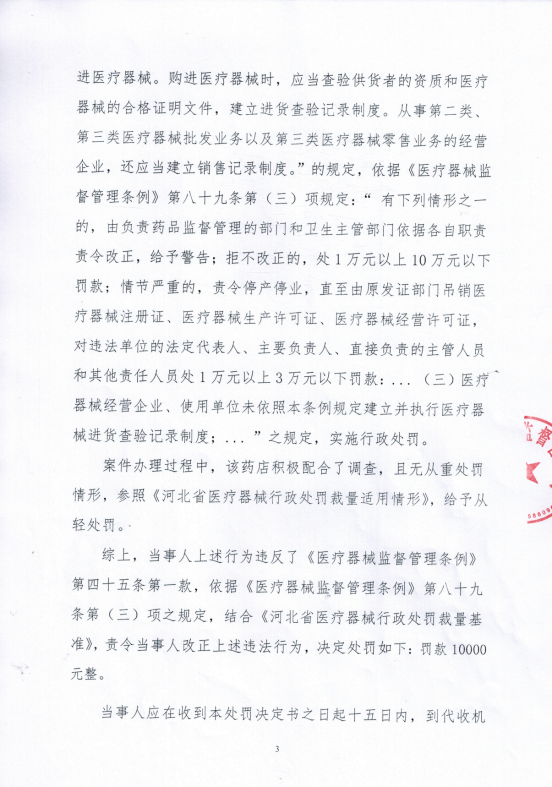 进医疗器械。购进医疗器械时，应当查验供货者的资质和医疗
器械的合格证明文件，建立进货查验记录制度。从事第二类、
第三类医疗器械批发业务以及第三类医疗器械零售业务的经营
企业，还应当建立销售记录制度。”的规定，依据《医疗器械监
督管理条例》第八十九条第（三）项规定：“ 有下列情形之一
的，由负责药品监督管理的部门和卫生主管部门依据各自职责
责令改正，给予警告；拒不改正的，处 1 万元以上 10 万元以下
罚款；情节严重的，责令停产停业，直至由原发证部门吊销医
疗器械注册证、医疗器械生产许可证、医疗器械经营许可证，
对违法单位的法定代表人、主要负责人、直接负责的主管人员
和其他责任人员处 1 万元以上 3 万元以下罚款：...（三）医疗
器械经营企业、使用单位未依照本条例规定建立并执行医疗器
械进货查验记录制度；... ”之规定，实施行政处罚。
案件办理过程中，该药店积极配合了调查，且无从重处罚
情形，参照《河北省医疗器械行政处罚裁量适用情形》，给予从
轻处罚。
综上，当事人上述行为违反了《医疗器械监督管理条例》
第四十五条第一款，依据《医疗器械监督管理条例》第八十九
条第（三）项之规定，结合《河北省医疗器械行政处罚裁量基
准》，责令当事人改正上述违法行为，决定处罚如下：罚款 10000
元整。
当事人应在收到本处罚决定书之日起十五日内，到代收机
3
督